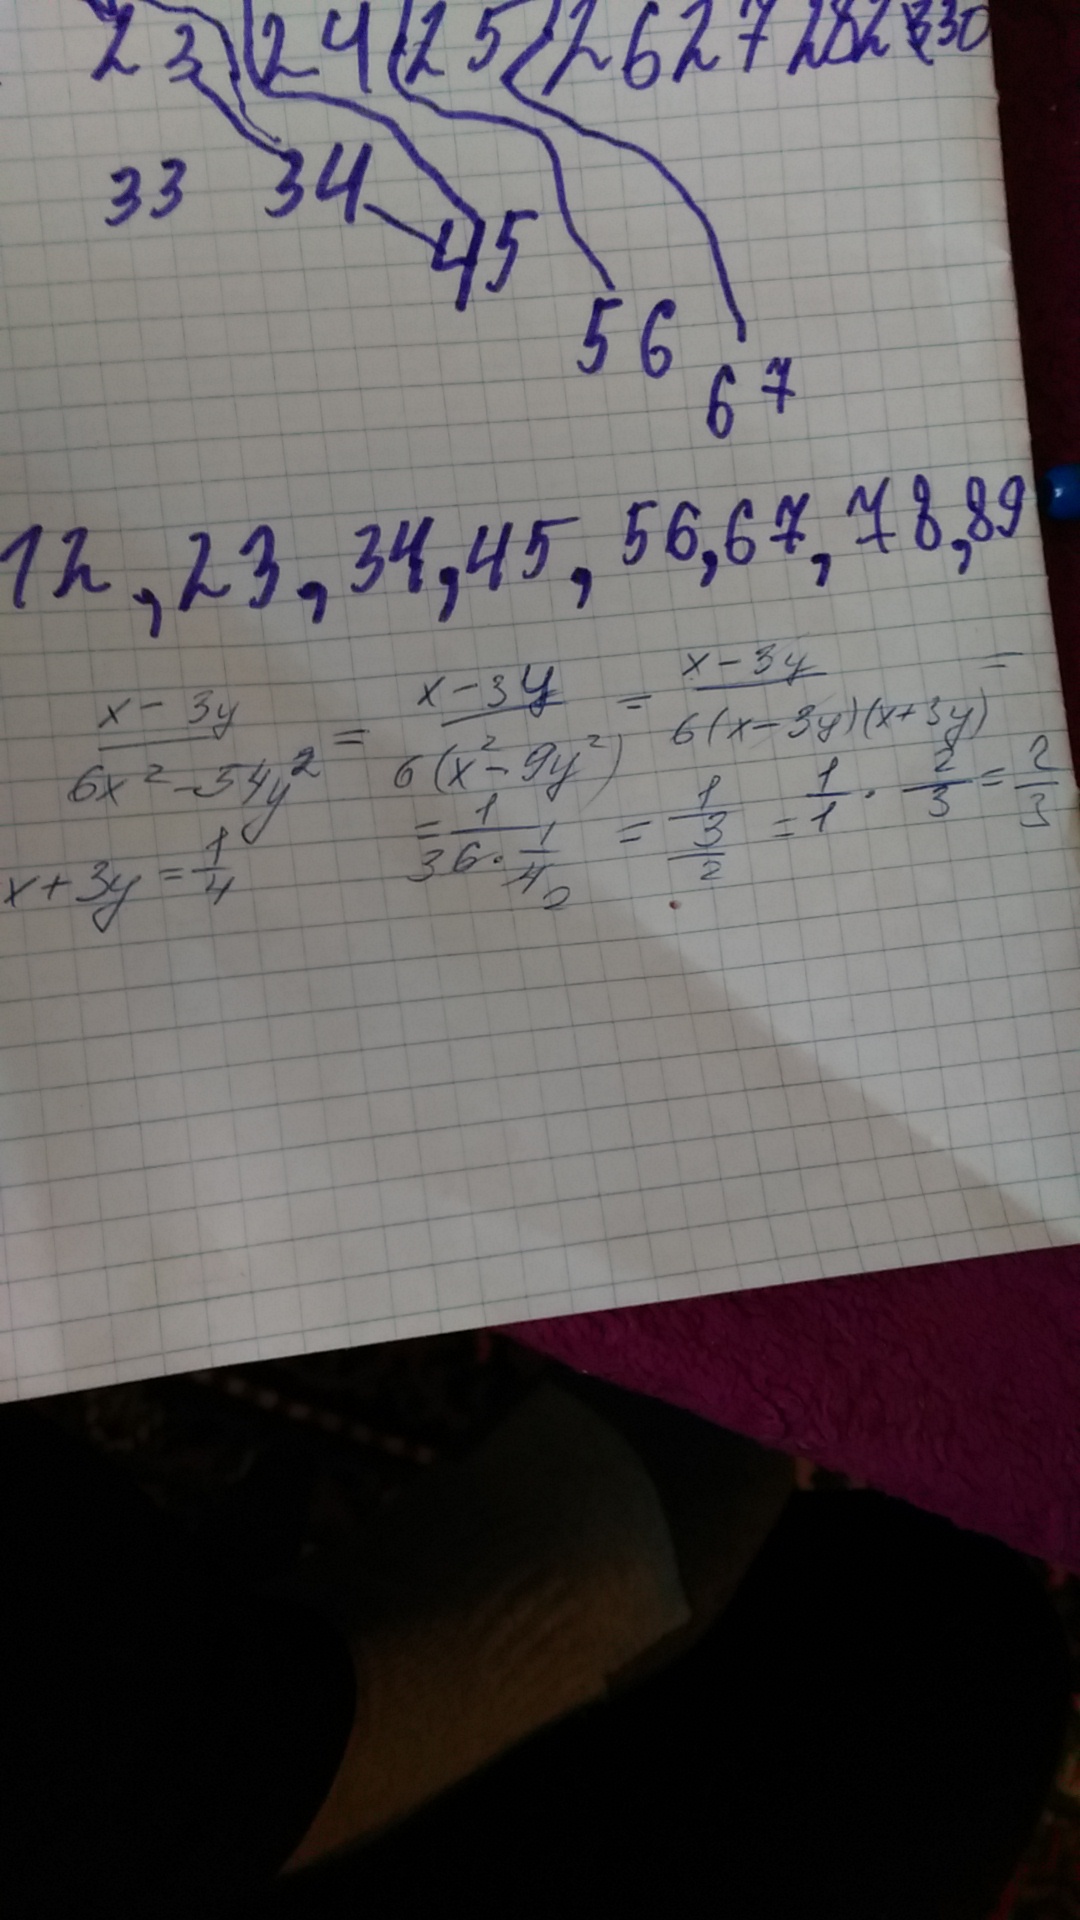 23 24 25 26 27 28 2 30
33 34
45
56
67
12, 23, 34, 45, 56, 67, 78, 89
x - 3y / 6x² - 54y² = x - 3y / 6(x² - 9y²) = x - 3y / 6(x - 3y)(x + 3y) =
x + 3y = 1/4
= 1 / 36 · 1/4 2 = 1 / 3/2 = 1/1 · 2/3 = 2/3